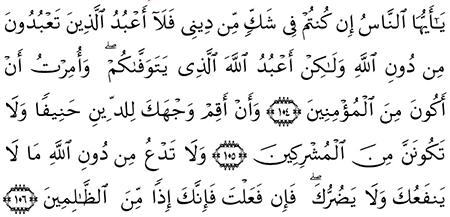 يَـٰٓأَيُّهَا ٱلنَّاسُ إِن كُنتُمْ فِى شَكٍّ مِّن دِينِى فَلَآ أَعْبُدُ ٱلَّذِينَ تَعْبُدُونَ
مِن دُونِ ٱللَّهِ وَلَـٰكِنْ أَعْبُدُ ٱللَّهَ ٱلَّذِى يَتَوَفَّىٰكُمْ ۖ وَأُمِرْتُ أَنْ
أَكُونَ مِنَ ٱلْمُؤْمِنِينَ ﴿١٠٤﴾ وَأَنْ أَقِمْ وَجْهَكَ لِلدِّينِ حَنِيفًا وَلَا
تَكُونَنَّ مِنَ ٱلْمُشْرِكِينَ ﴿١٠٥﴾ وَلَا تَدْعُ مِن دُونِ ٱللَّهِ مَا لَا
يَنفَعُكَ وَلَا يَضُرُّكَ ۖ فَإِن فَعَلْتَ فَإِنَّكَ إِذًا مِّنَ ٱلظَّـٰلِمِينَ ﴿١٠٦﴾